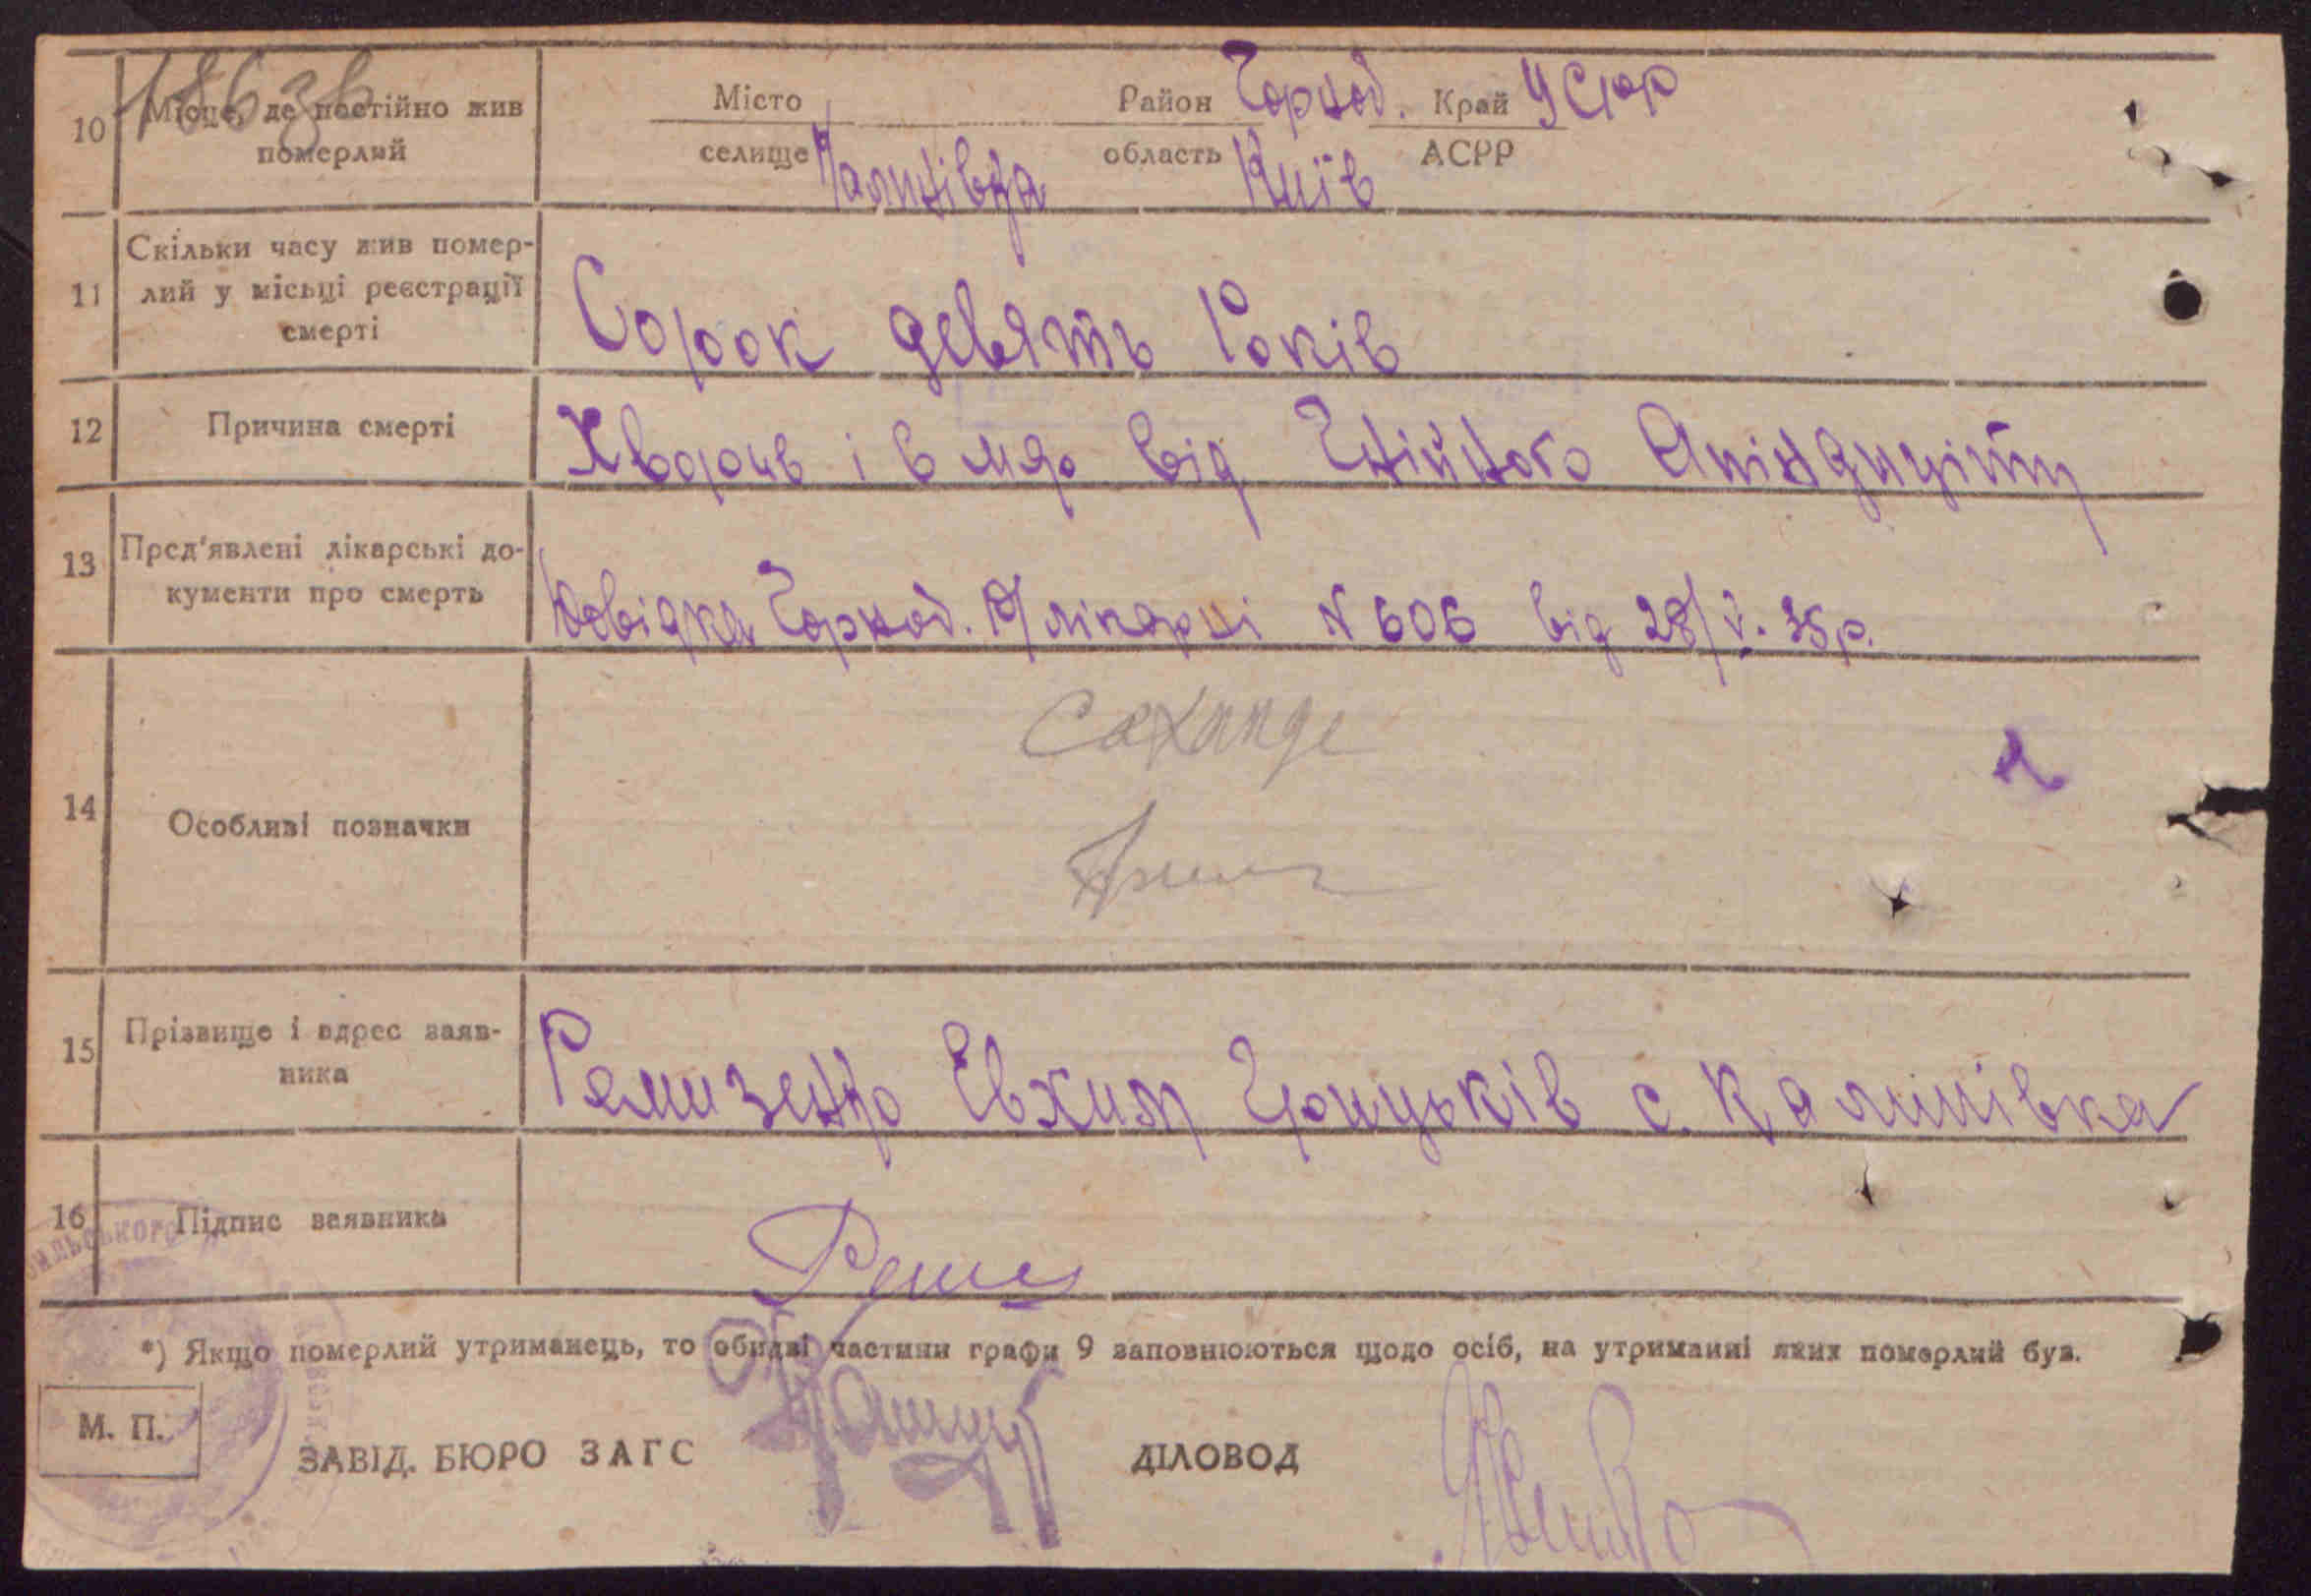 10 Місце, де постійно жив померлий
Місто Район Город. Край УСРР
селище Калинівка область Київ АСРР
11 Скільки часу жив помер-
лий у місьці реєстрації
смерті
Сорок девять Років
12 Причина смерті
Хворів і вмер від Гнійного Апіндициту
13 Пред'явлені лікарські до-
кументи про смерть
Довідка Город. лікарні N 606 від 28/V. 35 р.
14 Особливі позначки
15 Прізвище і адрес заяв-
ника
Ремизенко Євхим Грицьків с. Калинівка
16 Підпис заявника
*) Якщо померлий утриманець, то обидві частини графи 9 заповнюються щодо осіб, на утриманні яких померлий був.
М. П.
ЗАВІД. БЮРО ЗАГС ДІЛОВОД